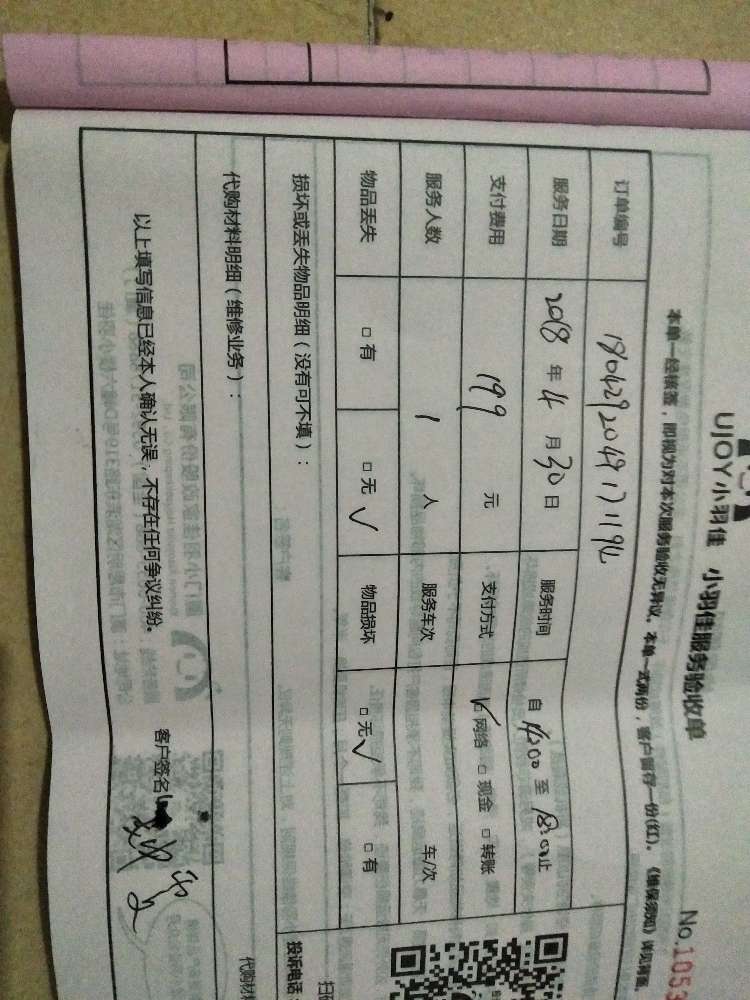 UJOY小羽佳 小羽佳服务验收单
No.105
本单一经核签，即视为对本次服务验收无异议。本单一式两份，客户留存一份(红)。《维保须知》详见背面。
订单编号
服务日期 2018 年 4 月 30 日 服务时间 自 14:00 至 18:00 止
支付费用 199 元 支付方式 ☑ 网络 □ 现金 □ 转账
服务人数 1 人 服务车次 车/次
物品丢失 □ 有 □ 无 √ 物品损坏 □ 无 √ □ 有
损坏或丢失物品明细（没有可不填）：
代购材料明细（维修业务）：
代购材
投诉电话：
以上填写信息已经本人确认无误，不存在任何争议纠纷。 客户签名